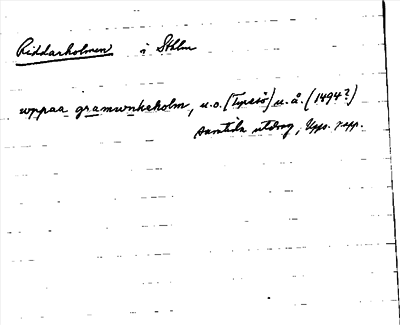 Riddarholmen i Sthlm
uppaa gramunkaholm, u.o. (Tyresö) u.å. (1494?)
samtida utdrag, Upps. papp.